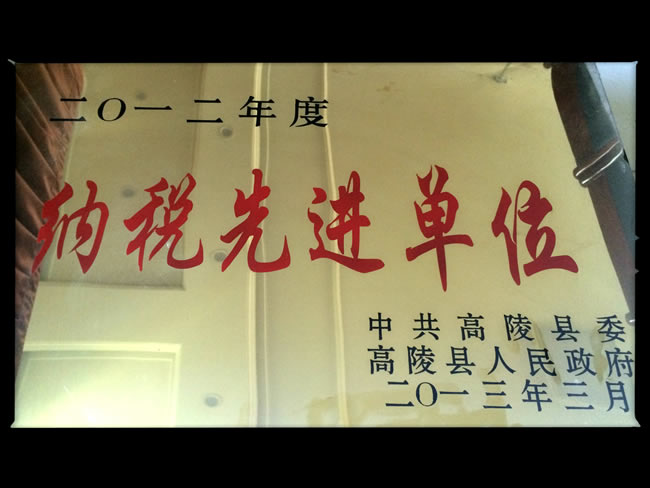 二〇一二年度
纳税先进单位
中共高陵县委
高陵县人民政府
二〇一三年三月